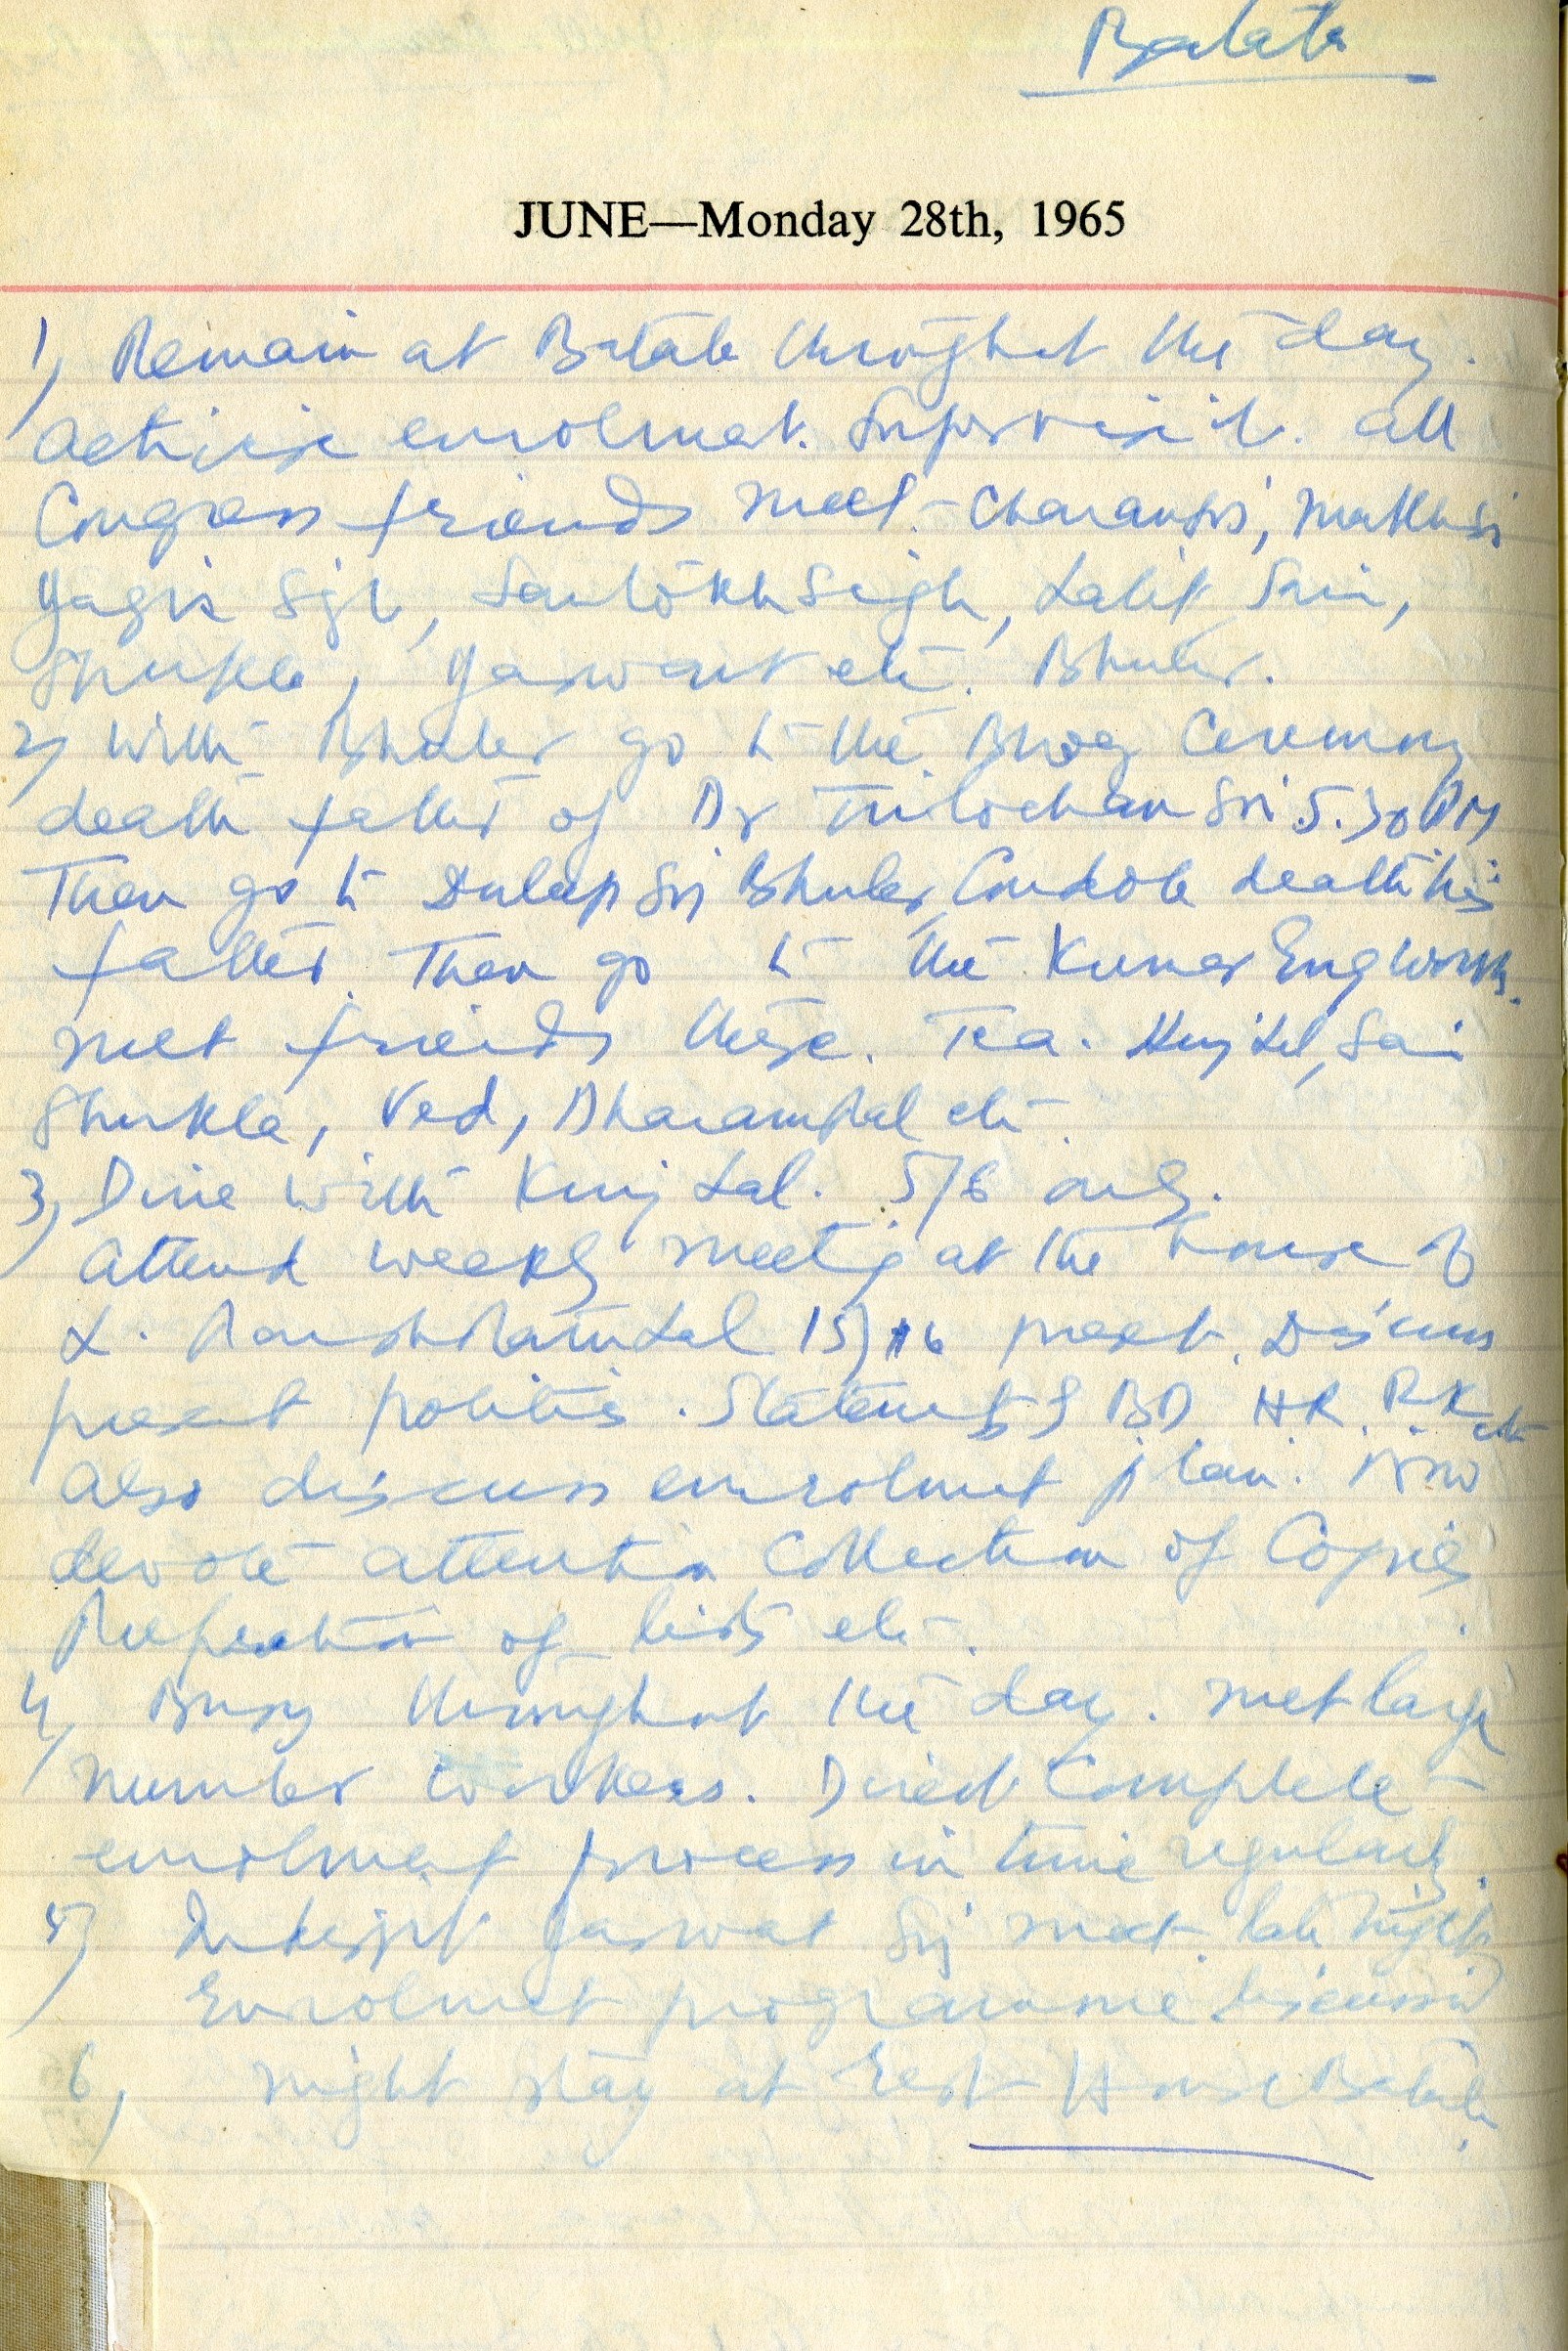 Batala
JUNE—Monday 28th, 1965
1) Remain at Batala throughout the day.
Activise enrolment. Supervise it. All
Congress friends meet - Charan Singh,
Santokh Singh, Lalit Saini,
Shukla, Jaswant etc. Bhuler.
2) With Bhuler go to the Bhog Ceremony
death father of Dr Trilochan Sri. 5.30 PM
Then go to Duleep Sri Bhuler, Condole death his
father. Then go to the Kumar Eng Works.
Meet friends there. Tea. Kunj Lal, Saini
Shukla, Ved, Dharampal etc.
3) Dine with Kunj Lal. 5/6 only.
Attend weekly meeting at the house of
L. Lal 15/16 present. Discuss
present politics. Statements of BD HR. RK etc
Also discuss enrolment plan. Now
devote attention Collection of Copies
Preparation of lists etc.
4) Busy throughout the day. Met large
number workers. Direct Complete
enrolment process in time regularly.
5) Jaswat Sri meet. late night
Enrolment programme discussed
6) Night stay at Rest House Batala.